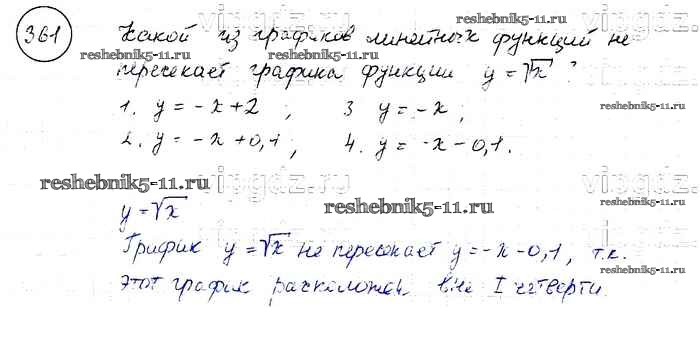 361 Какой из графиков линейных функций не
пересекает графика функции y = √x ?
1. y = -x+2 ; 3 y = -x ;
2. y = -x+0,1 ; 4. y = -x-0,1.
y = √x
График y = √x не пересекает y = -x-0,1, т.к.
этот график расположен вне I четверти.
reshebnik5-11.ru
reshebnik5-11.ru
reshebnik5-11.ru
reshebnik5-11.ru
reshebnik5-11.ru
reshebnik5-11.ru
reshebnik5-11.ru
vipgdz.ru
vipgdz.ru
vipgdz.ru
vipgdz.ru